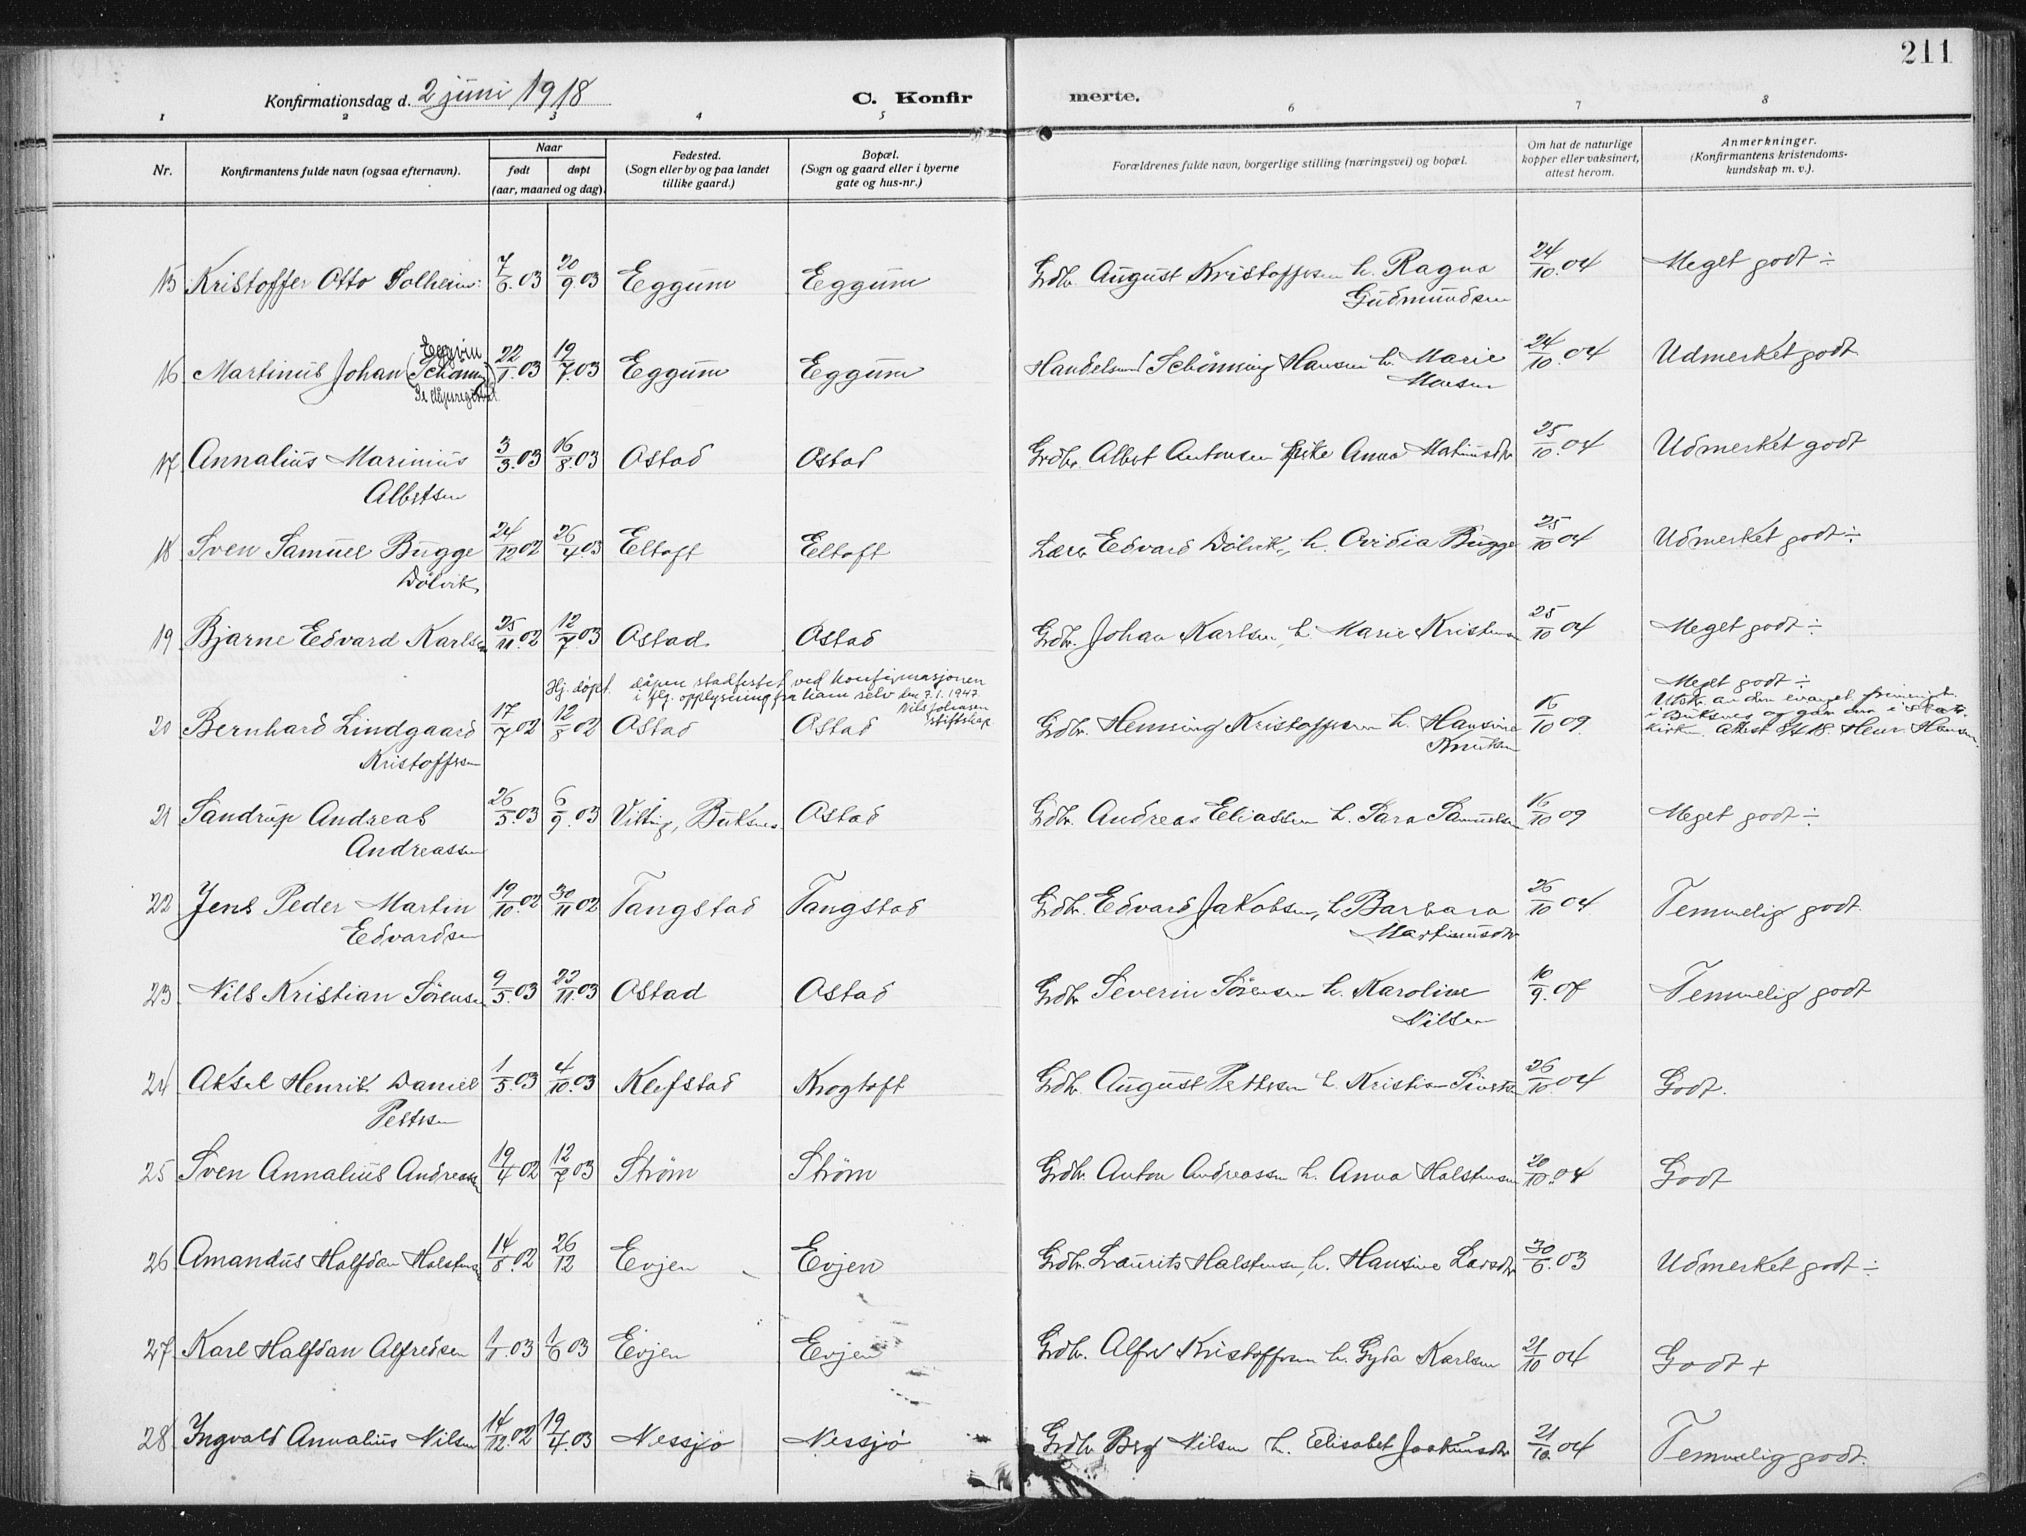 211
Konfirmationsdag d. 2 juni 1918 C. Konfirmerte.
1 2 3 4 5 6 7 8
Nr. Konfirmantens fulde navn (ogsaa efternavn). Naar født døpt (aar, maaned og dag). Fødested. (Sogn eller by og paa landet tillike gaard.) Bopæl. (Sogn og gaard eller i byerne gate og hus-nr.) Forældrenes fulde navn, borgerlige stilling (næringsvei) og bopæl. Om hat de naturlige kopper eller vaksinert, attest herom. Anmerkninger. (Konfirmantens kristendoms-kundskap m. v.).
15 Kristoffer Otto Solheim 7/6.03 20/9.03 Eggum Eggum Grdbr. August Kristoffersen h. Ragna 24/10.04 Meget godt ÷
Gudmundsen
16 Martinus Johan (Schøning) 22/1.03 19/7.03 Eggum Eggum Handelsmd Schønning Hansen h. Marie 24/10.04 Udmerket godt
17 Annalius Marinius 3/3.03 16/8.03 Ostad Ostad Grdbr. Albert Antonsen Anna 25/10.04 Udmerket godt
Albertsen
18 Sven Samuel Bugge 24/12 02 26/4.03 Eltoft Eltoft Lærer Edvard Dølvik, h. Ovidia Bugge 25/10 04 Udmerket godt ÷
Dølvik
19 Bjarne Edvard Karlsen 25/11.02 12/7.03 Ostad Ostad Grdbr. Johan Karlsen, h. Marie Kristensen 25/10 04 Meget godt ÷
Hj. døpt. dåpen stadfestet ved konfirmasjonen
i flg. opplysning fra ham selv den 7.1.1947
Nils Johansen
20 Bernhard Lindgaard 17/7 02 12/8 02 Ostad Ostad Grdbr. Henning Kristoffersen h. Hansine 16/10 09. Meget godt ÷
Kristoffersen Knutsen
21 Sandrup Andreas 26/5.03 6/9.03 Buksnes Ostad Grdbr. Andreas Eliassen h. Sara Samuelsen 16/10 09 Meget godt ÷
Andreassen
22 Jens Peder Martin 19/10.02 30/11 02 Tangstad Tangstad Grdbr. Edvard Jakobsen, h. Barbara 26/10 04 Temmelig godt.
Edvardsen Martinusdtr
23 Nils Kristian Sørensen 9/5.03 22/11.03 Ostad Ostad Grdbr Severin Sørensen h. Karoline 10/9.07 Temmelig godt
Nilsen
24 Aksel Henrik Daniel 1/5.03 4/10.03 Klefstad Krogtoft Grdbr. August Pettersen h. Kristian Sivertsen 26/10.04 Godt.
Pettersen
25 Sven Annalius Andreassen 19/4 02 12/7 03 Strøm Strøm Grdbr. Anton Andreassen h. Anna Halstensen 20/10.04 Godt
26 Amandus Halfdan Halstensen 14/8.02 26/12 Evjen Evjen Grdbr. Laurits Halstensen, h. Hansine Larsdtr 30/6.03 Udmerket godt ÷
27 Karl Halfdan Alfredsen 1/1.03 1/6 03 Evjen Evjen Grdbr. Alfred Kristoffersen h. Gyda Karlsen 21/10 04 Godt +
28 Ingvald Annalius Nilsen 14/12.02 19/4.03 Nessjø Nessjø Grdbr Berg Nilsen h. Elisabet Joakimsdtr 21/10 04 Temmelig godt.